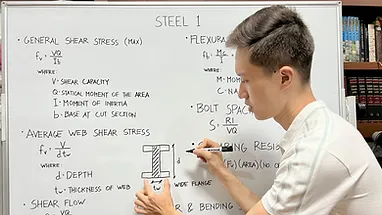 STEEL 1
• GENERAL SHEAR STRESS (MAX)
fv = VQ / Ib
WHERE
V = SHEAR CAPACITY
Q = STATICAL MOMENT OF THE AREA
I = MOMENT OF INERTIA
b = BASE AT CUT SECTION
• AVERAGE WEB SHEAR STRESS
fv = V / dtw
WHERE
d = DEPTH
tw = THICKNESS OF WEB
d
tw
WIDE FLANGE
• SHEAR FLOW
VQ
• FLEXURA
fb = Mc / I
WHERE
M = MOM
C = NA
• BOLT SPAC
S = RI / VQ
RESIS
(Fv)(AREA)(NO. O
R & BENDING